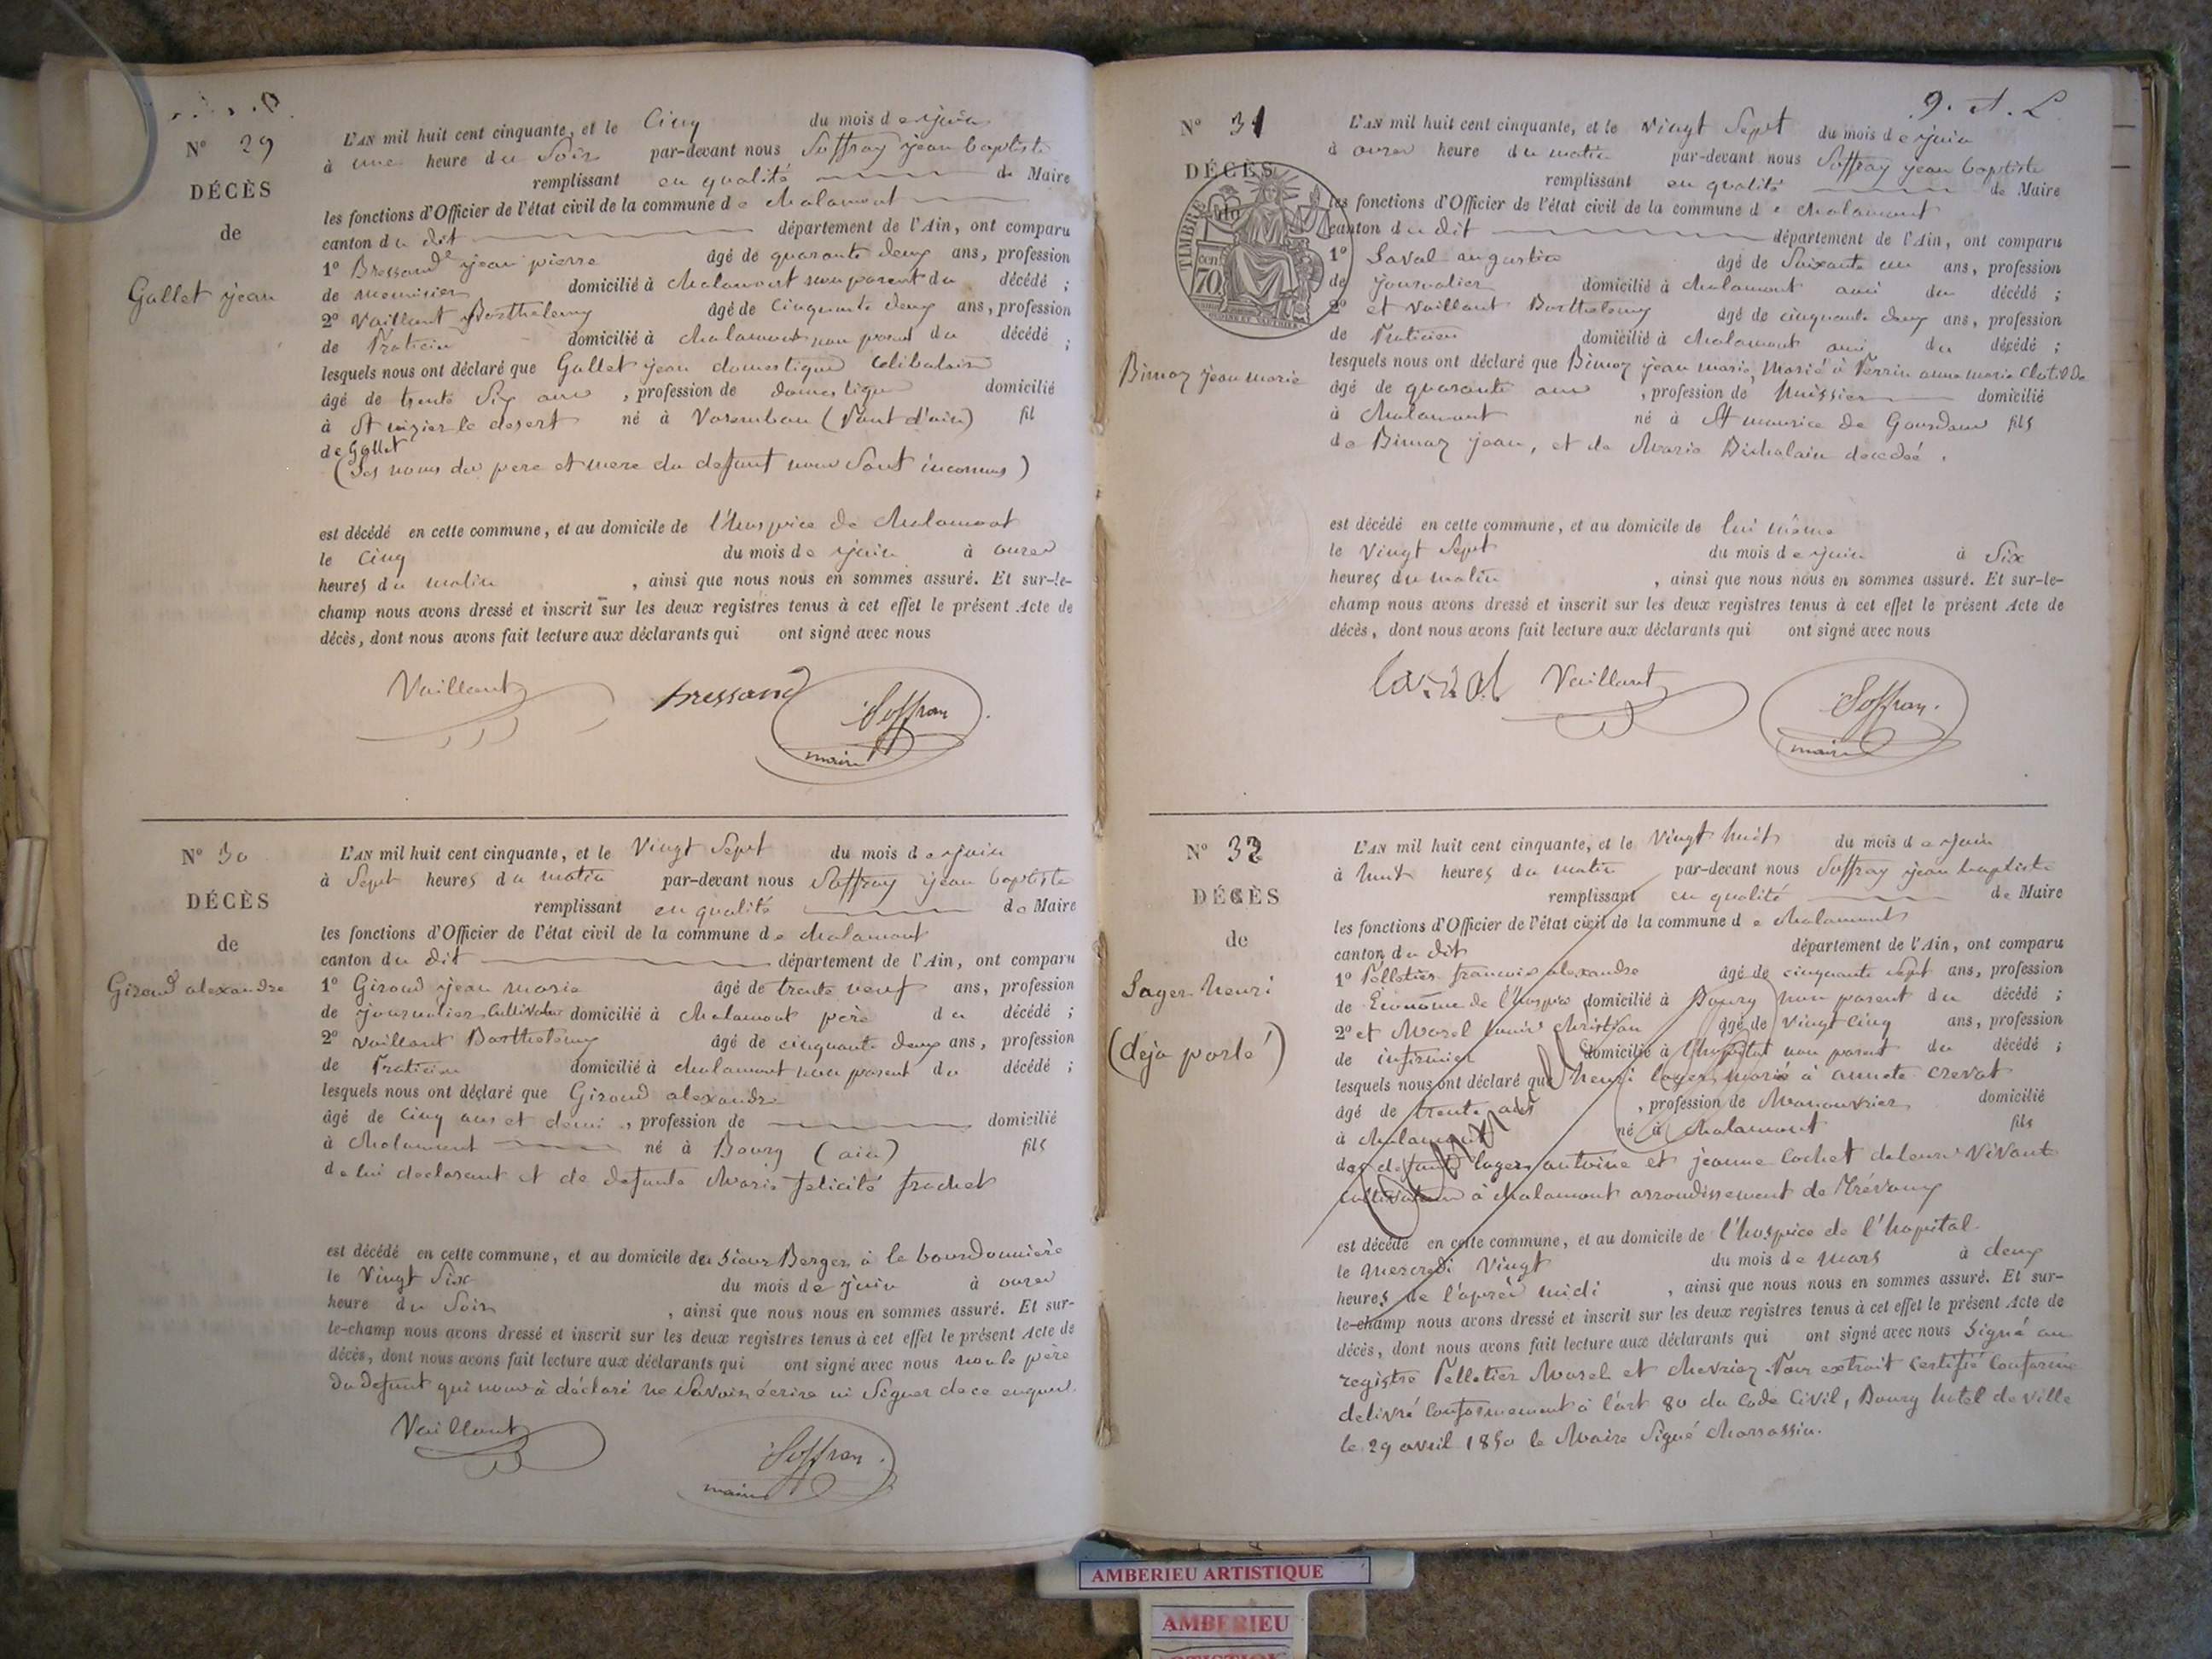 N° 29
DÉCÈS
de
Gallet jean
L'AN mil huit cent cinquante, et le Cinq du mois de juin
à une heure du Soir par-devant nous Soffray jean baptiste
remplissant en qualité de Maire
les fonctions d'Officier de l'état civil de la commune de chalamont
canton du dit département de l'Ain, ont comparu
1° Bressand jean pierre âgé de quarante deux ans, profession
de menuisier domicilié à chalamont non parent du décédé ;
2° Vaillant Barthelemy âgé de cinquante deux ans, profession
de Praticien domicilié à chalamont non parent du décédé ;
lesquels nous ont déclaré que Gallet jean domestique Celibataire
âgé de trente Six ans , profession de domestique domicilié
à St nizier le desert né à Varambon (Pont d'ain) fil
de Gallet
(Les noms des pere et mere du defunt nous Sont inconnus)
est décédé en cette commune, et au domicile de l'hospice de chalamont
le Cinq du mois de juin à onze
heures du matin , ainsi que nous nous en sommes assuré. Et sur-le-
champ nous avons dressé et inscrit sur les deux registres tenus à cet effet le présent Acte de
décès, dont nous avons fait lecture aux déclarants qui ont signé avec nous
Vaillant bressand Soffray
maire
N° 30
DÉCÈS
de
Giroud alexandre
L'AN mil huit cent cinquante, et le Vingt Sept du mois de juin
à Sept heures du matin par-devant nous Soffray jean baptiste
remplissant en qualité de Maire
les fonctions d'Officier de l'état civil de la commune de chalamont
canton du dit département de l'Ain, ont comparu
1° Giroud jean marie âgé de trente neuf ans, profession
de journalier Cultivateur domicilié à chalamont père du décédé ;
2° Vaillant Barthelemy âgé de cinquante deux ans, profession
de Praticien domicilié à chalamont non parent du décédé ;
lesquels nous ont déclaré que Giroud alexandre
âgé de Cinq ans et demi , profession de domicilié
à chalamont né à Bourg (ain) fils
de lui declarant et de defunte Marie felicité frachet
est décédé en cette commune, et au domicile du Sieur Berger à la bourdonnière
le Vingt Six du mois de juin à onze
heure du Soir , ainsi que nous nous en sommes assuré. Et sur-
le-champ nous avons dressé et inscrit sur les deux registres tenus à cet effet le présent Acte de
décès, dont nous avons fait lecture aux déclarants qui ont signé avec nous non le père
du defunt qui nous à déclaré ne Savoir écrire ni Signer de ce enquis.
Vaillant Soffray
maire
9. A. L
N° 31
DÉCÈS
de
TIMBRE
70
Bimoz jean marie
L'AN mil huit cent cinquante, et le Vingt Sept du mois de juin
à onze heure du matin par-devant nous Soffray jean baptiste
remplissant en qualité de Maire
les fonctions d'Officier de l'état civil de la commune de chalamont
canton du dit département de l'Ain, ont comparu
1° Laval augustin âgé de Soixante un ans, profession
de journalier domicilié à chalamont ami du décédé ;
2° et Vaillant Barthelemy âgé de cinquante deux ans, profession
de Praticien domicilié à chalamont ami du décédé ;
lesquels nous ont déclaré que Bimoz jean marie, Marié à Perrin anne marie Clotilde
âgé de quarante ans , profession de huissier domicilié
à chalamont né à St maurice de Gourdans fils
de Bimoz jean, et de Marie Bichalain decedée .
est décédé en cette commune, et au domicile de lui même
le Vingt Sept du mois de juin à Six
heures du matin , ainsi que nous nous en sommes assuré. Et sur-le-
champ nous avons dressé et inscrit sur les deux registres tenus à cet effet le présent Acte de
décès, dont nous avons fait lecture aux déclarants qui ont signé avec nous
laval Vaillant Soffray.
maire
N° 32
DÉCÈS
de
Lager henri
(deja porté)
L'AN mil huit cent cinquante, et le Vingt huit du mois de juin
à huit heures du matin par-devant nous Soffray jean baptiste
remplissant en qualité de Maire
les fonctions d'Officier de l'état civil de la commune de chalamont
canton du dit département de l'Ain, ont comparu
1° Pelletier francois alexandre âgé de cinquante Sept ans, profession
de Econome de l'hospice domicilié à Bourg non parent du décédé ;
2° et Morel Christian âgé de vingt cinq ans, profession
de infirmier domicilié à l'hopital non parent du décédé ;
lesquels nous ont déclaré que henri lager marié à annete crevat
âgé de trente ans , profession de Manouvrier domicilié
à chalamont né à chalamont fils
des defunts lager antoine et jeanne cochet de leur Vivant
cultivateurs à chalamont arrondissement de Trévoux
est décédé en cette commune, et au domicile de l'hospice de l'hopital
le Mercredi Vingt du mois de mars à deux
heures de l'après midi , ainsi que nous nous en sommes assuré. Et sur-
le-champ nous avons dressé et inscrit sur les deux registres tenus à cet effet le présent Acte de
décès, dont nous avons fait lecture aux déclarants qui ont signé avec nous Signé au
registre Pelletier Morel et chevrier. Pour extrait Certifié Conforme
delivré Conformement à l'art 80 du Code Civil, Bourg hotel de Ville
le 29 avril 1850 le Maire Signé
AMBERIEU ARTISTIQUE
AMBERIEU
ARTISTIQUE